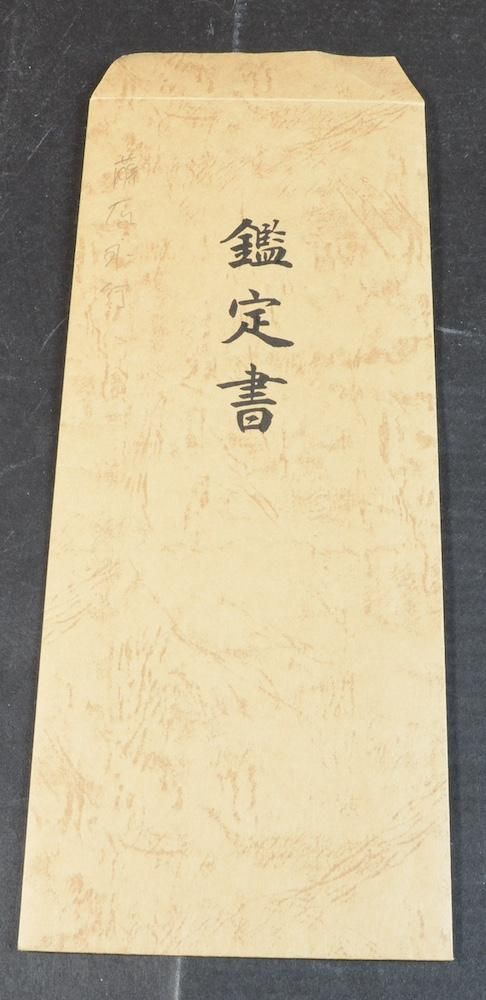 鑑定書
藤原永行